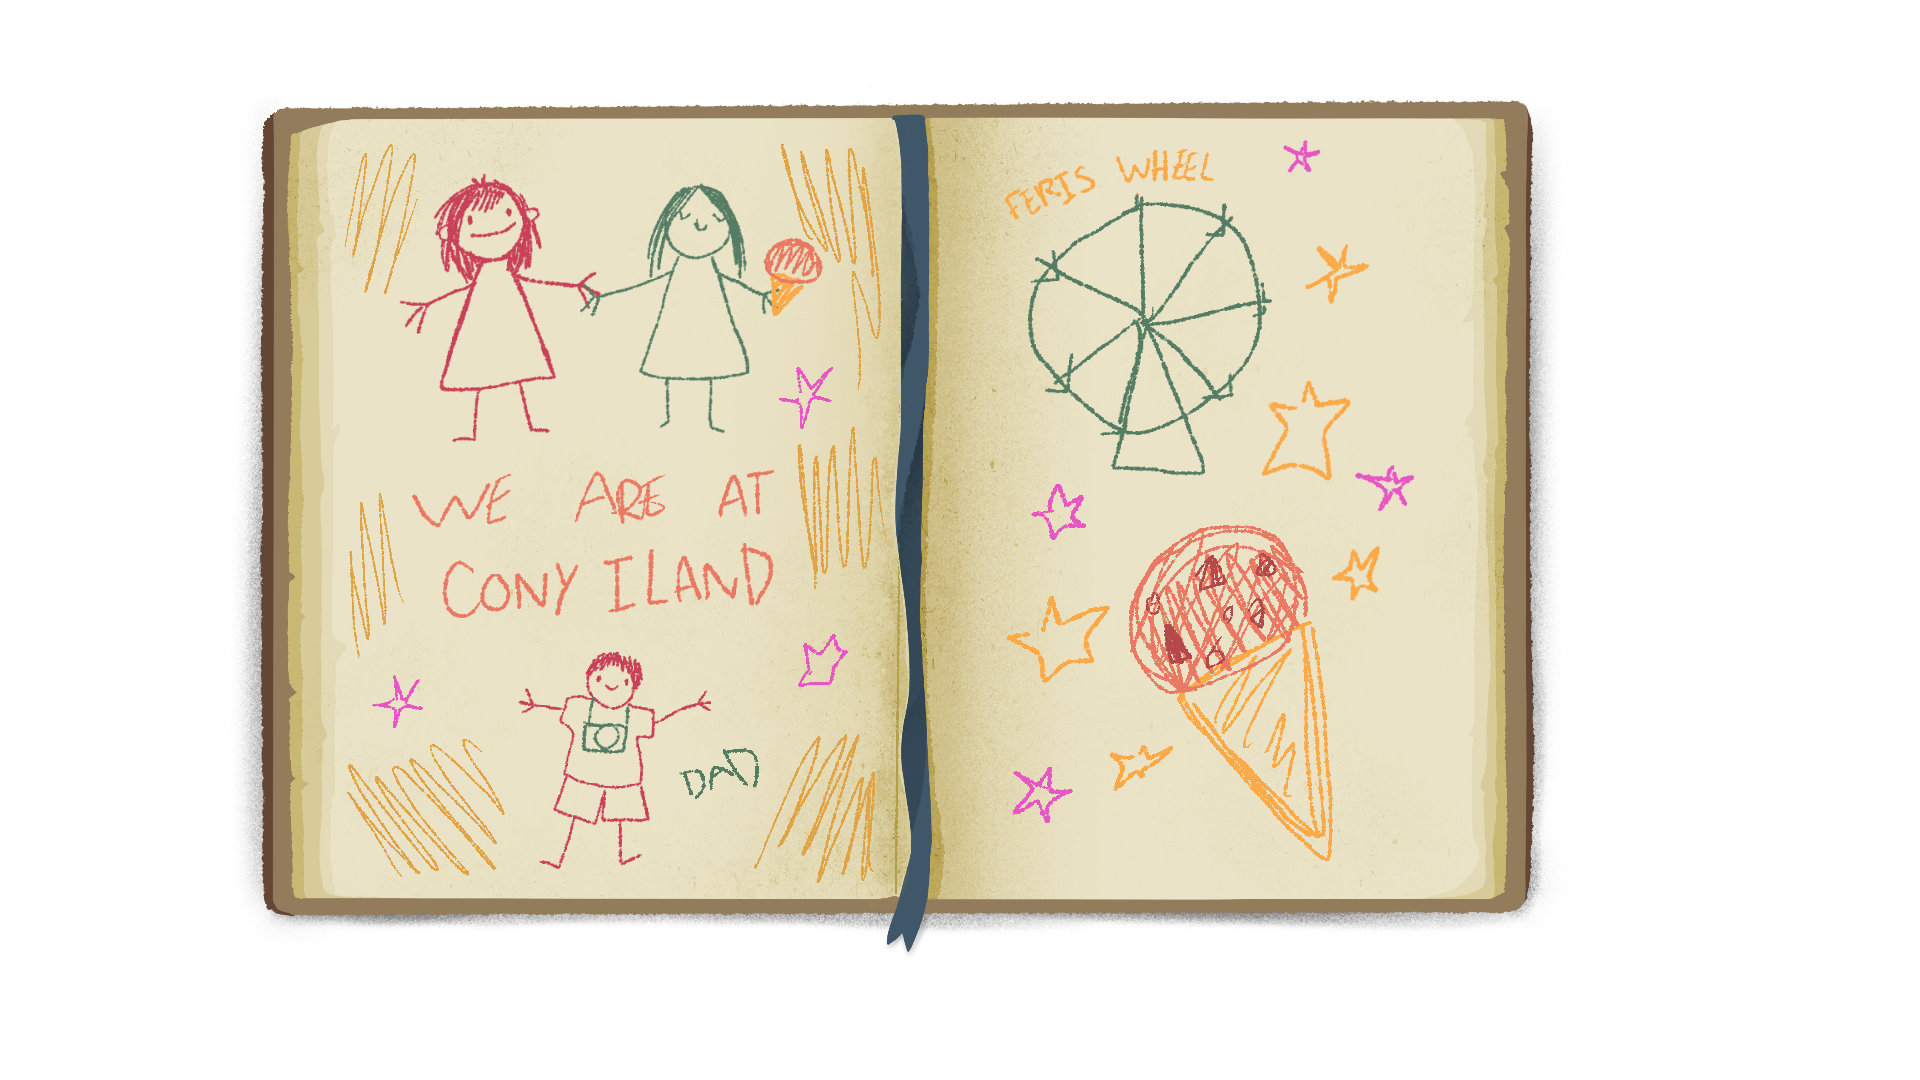 WE ARE AT
CONY ILAND
DAD
FERIS WHEEL